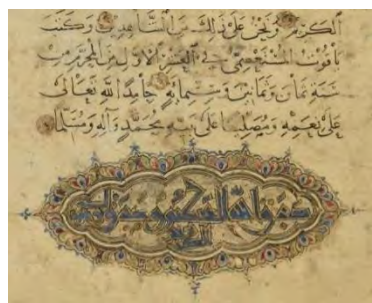 الكريم ونحن على ذلك من الشاهدين وكتب
ياقوت المستعصمي في العشر الاول من المحرم من
سنة ثمان وثمانين وستمائة حامدا لله تعالى
على نعمه ومصليا على نبيه محمد وآله ومسلما
صدق الله العظيم وصدق رسوله
الكريم